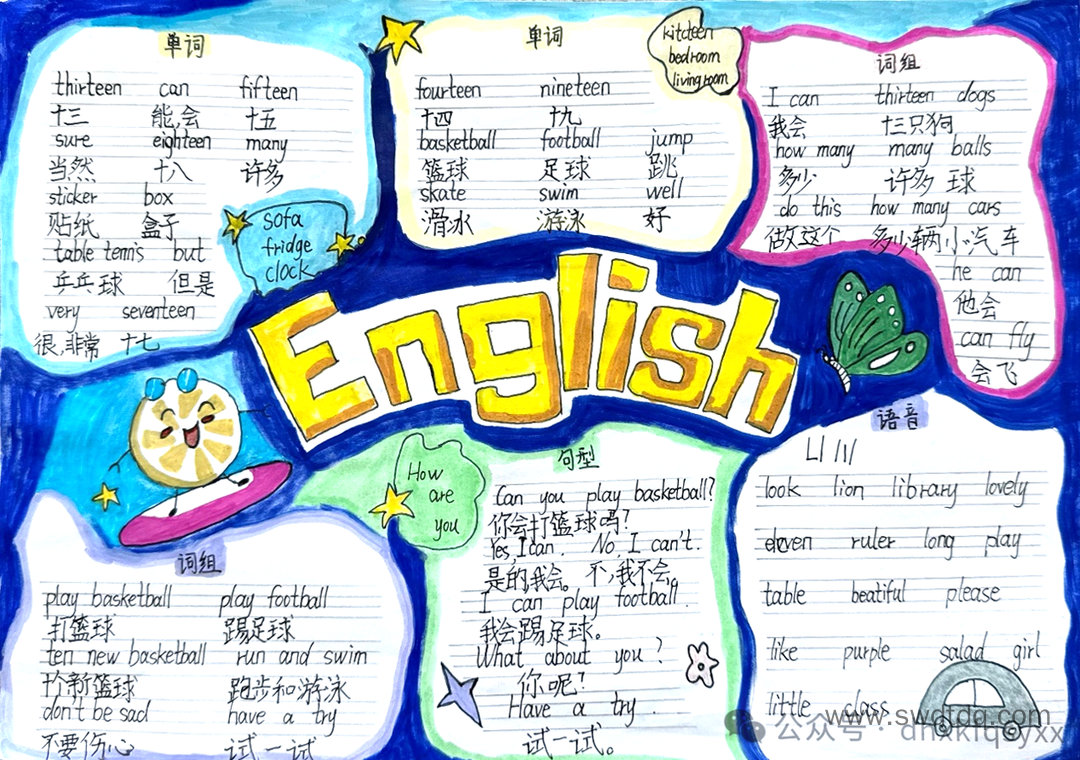 单词
thirteen can fifteen
十三 能,会 十五
sure eighteen many
当然 十八 许多
sticker box
贴纸 盒子
table tennis but
乒乓球 但是
very seventeen
很,非常 十七
Sofa
fridge
clock
单词
fourteen nineteen
十四 十九
basketball football jump
篮球 足球 跳
skate swim well
滑冰 游泳 好
kitcteen
bedroom
livingroom
词组
I can thirteen dogs
我会 十三只狗
how many many balls
多少 许多球
do this how many cars
做这个 多少辆小汽车
he can
他会
can fly
会飞
English
词组
play basketball play football
打篮球 踢足球
ten new basketball run and swim
新篮球 跑步和游泳
don't be sad have a try
不要伤心 试一试
How
are
you
句型
Can you play basketball?
你会打篮球吗?
Yes, I can. No, I can't.
是的我会。不,我不会。
I can play football.
我会踢足球。
What about you?
你呢?
Have a try.
试一试。
语音
Ll /l/
look lion library lovely
ruler long play
table beatiful please
like purple salad girl
little class
www.swqtdq.com
公众号·